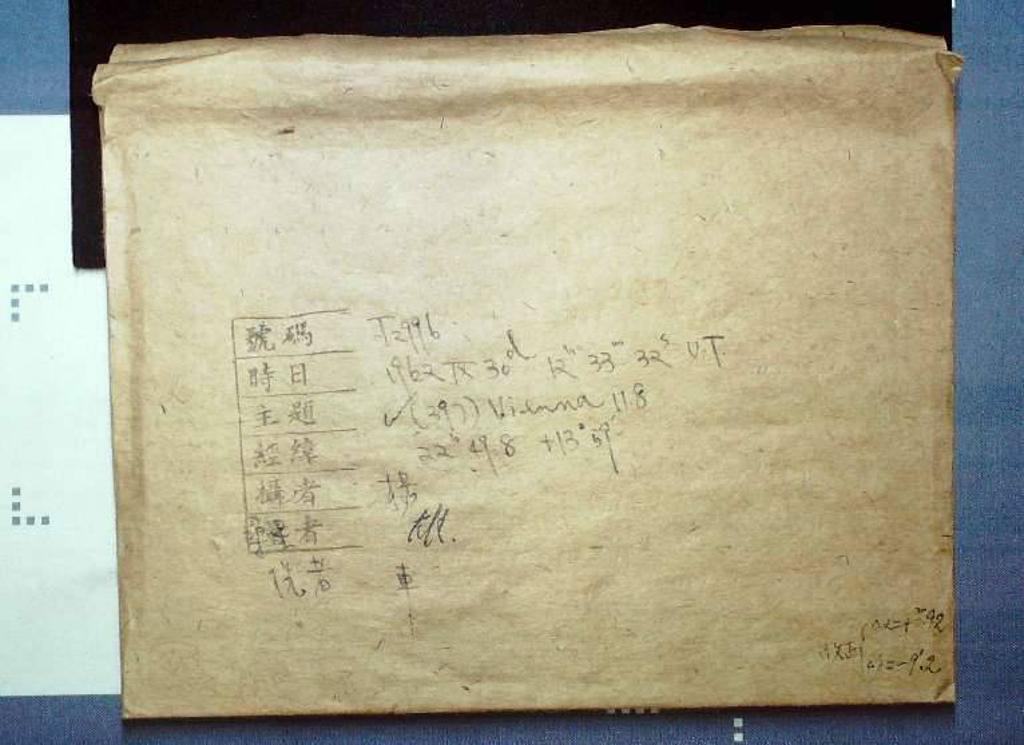 號碼 J2996
時日 1962 IX 30ᵈ 12ʰ 33ᵐ 32ˢ U.T.
主題 ✓(397) Vienna 11.8
經緯 22ʰ 49.8 +13°59'
攝者 楊
者
者 車
改正 Δα=+ᵐ.92
Δδ=-9'.2